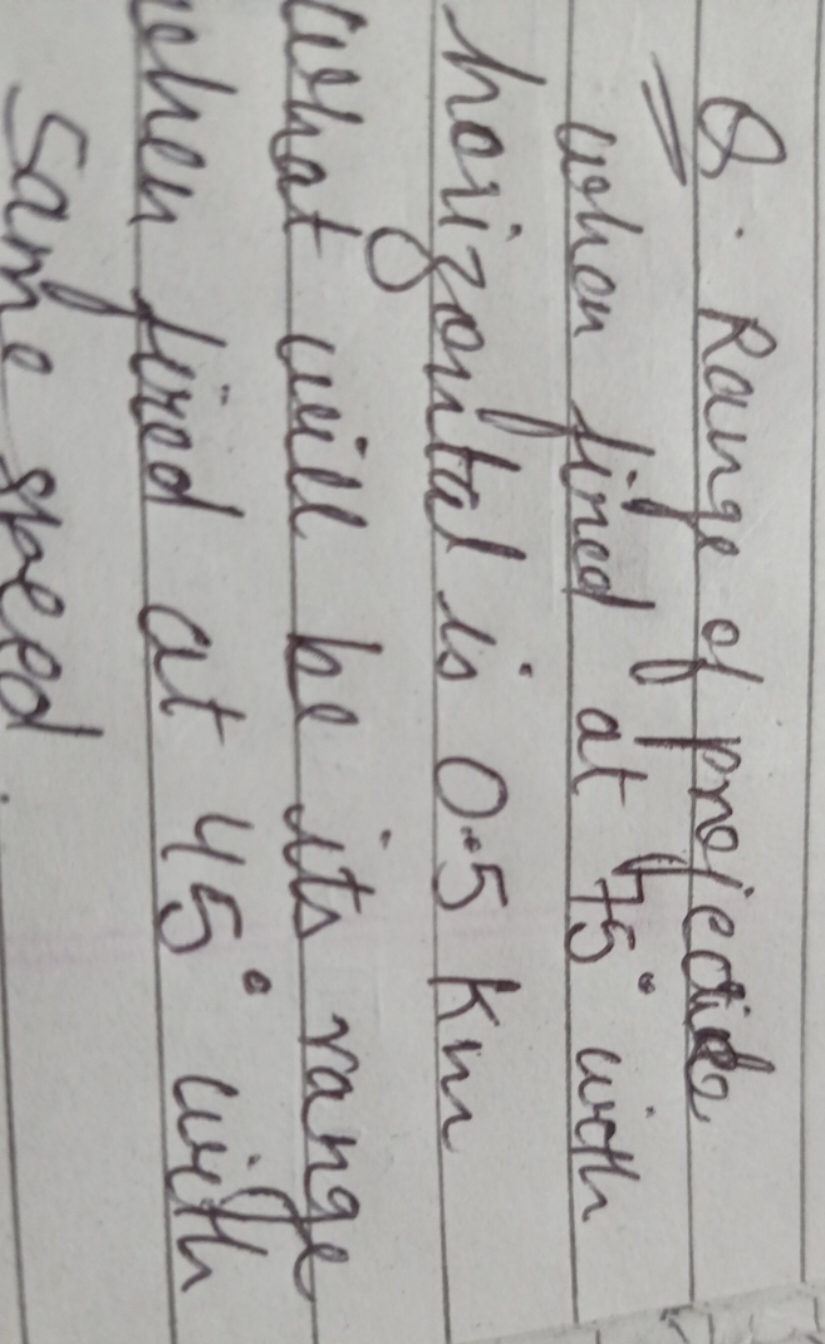 Q. Range of projectile
when fired at 75° with
horizontal is 0.5 Km
what will be its range
when fired at 45° with
same speed.